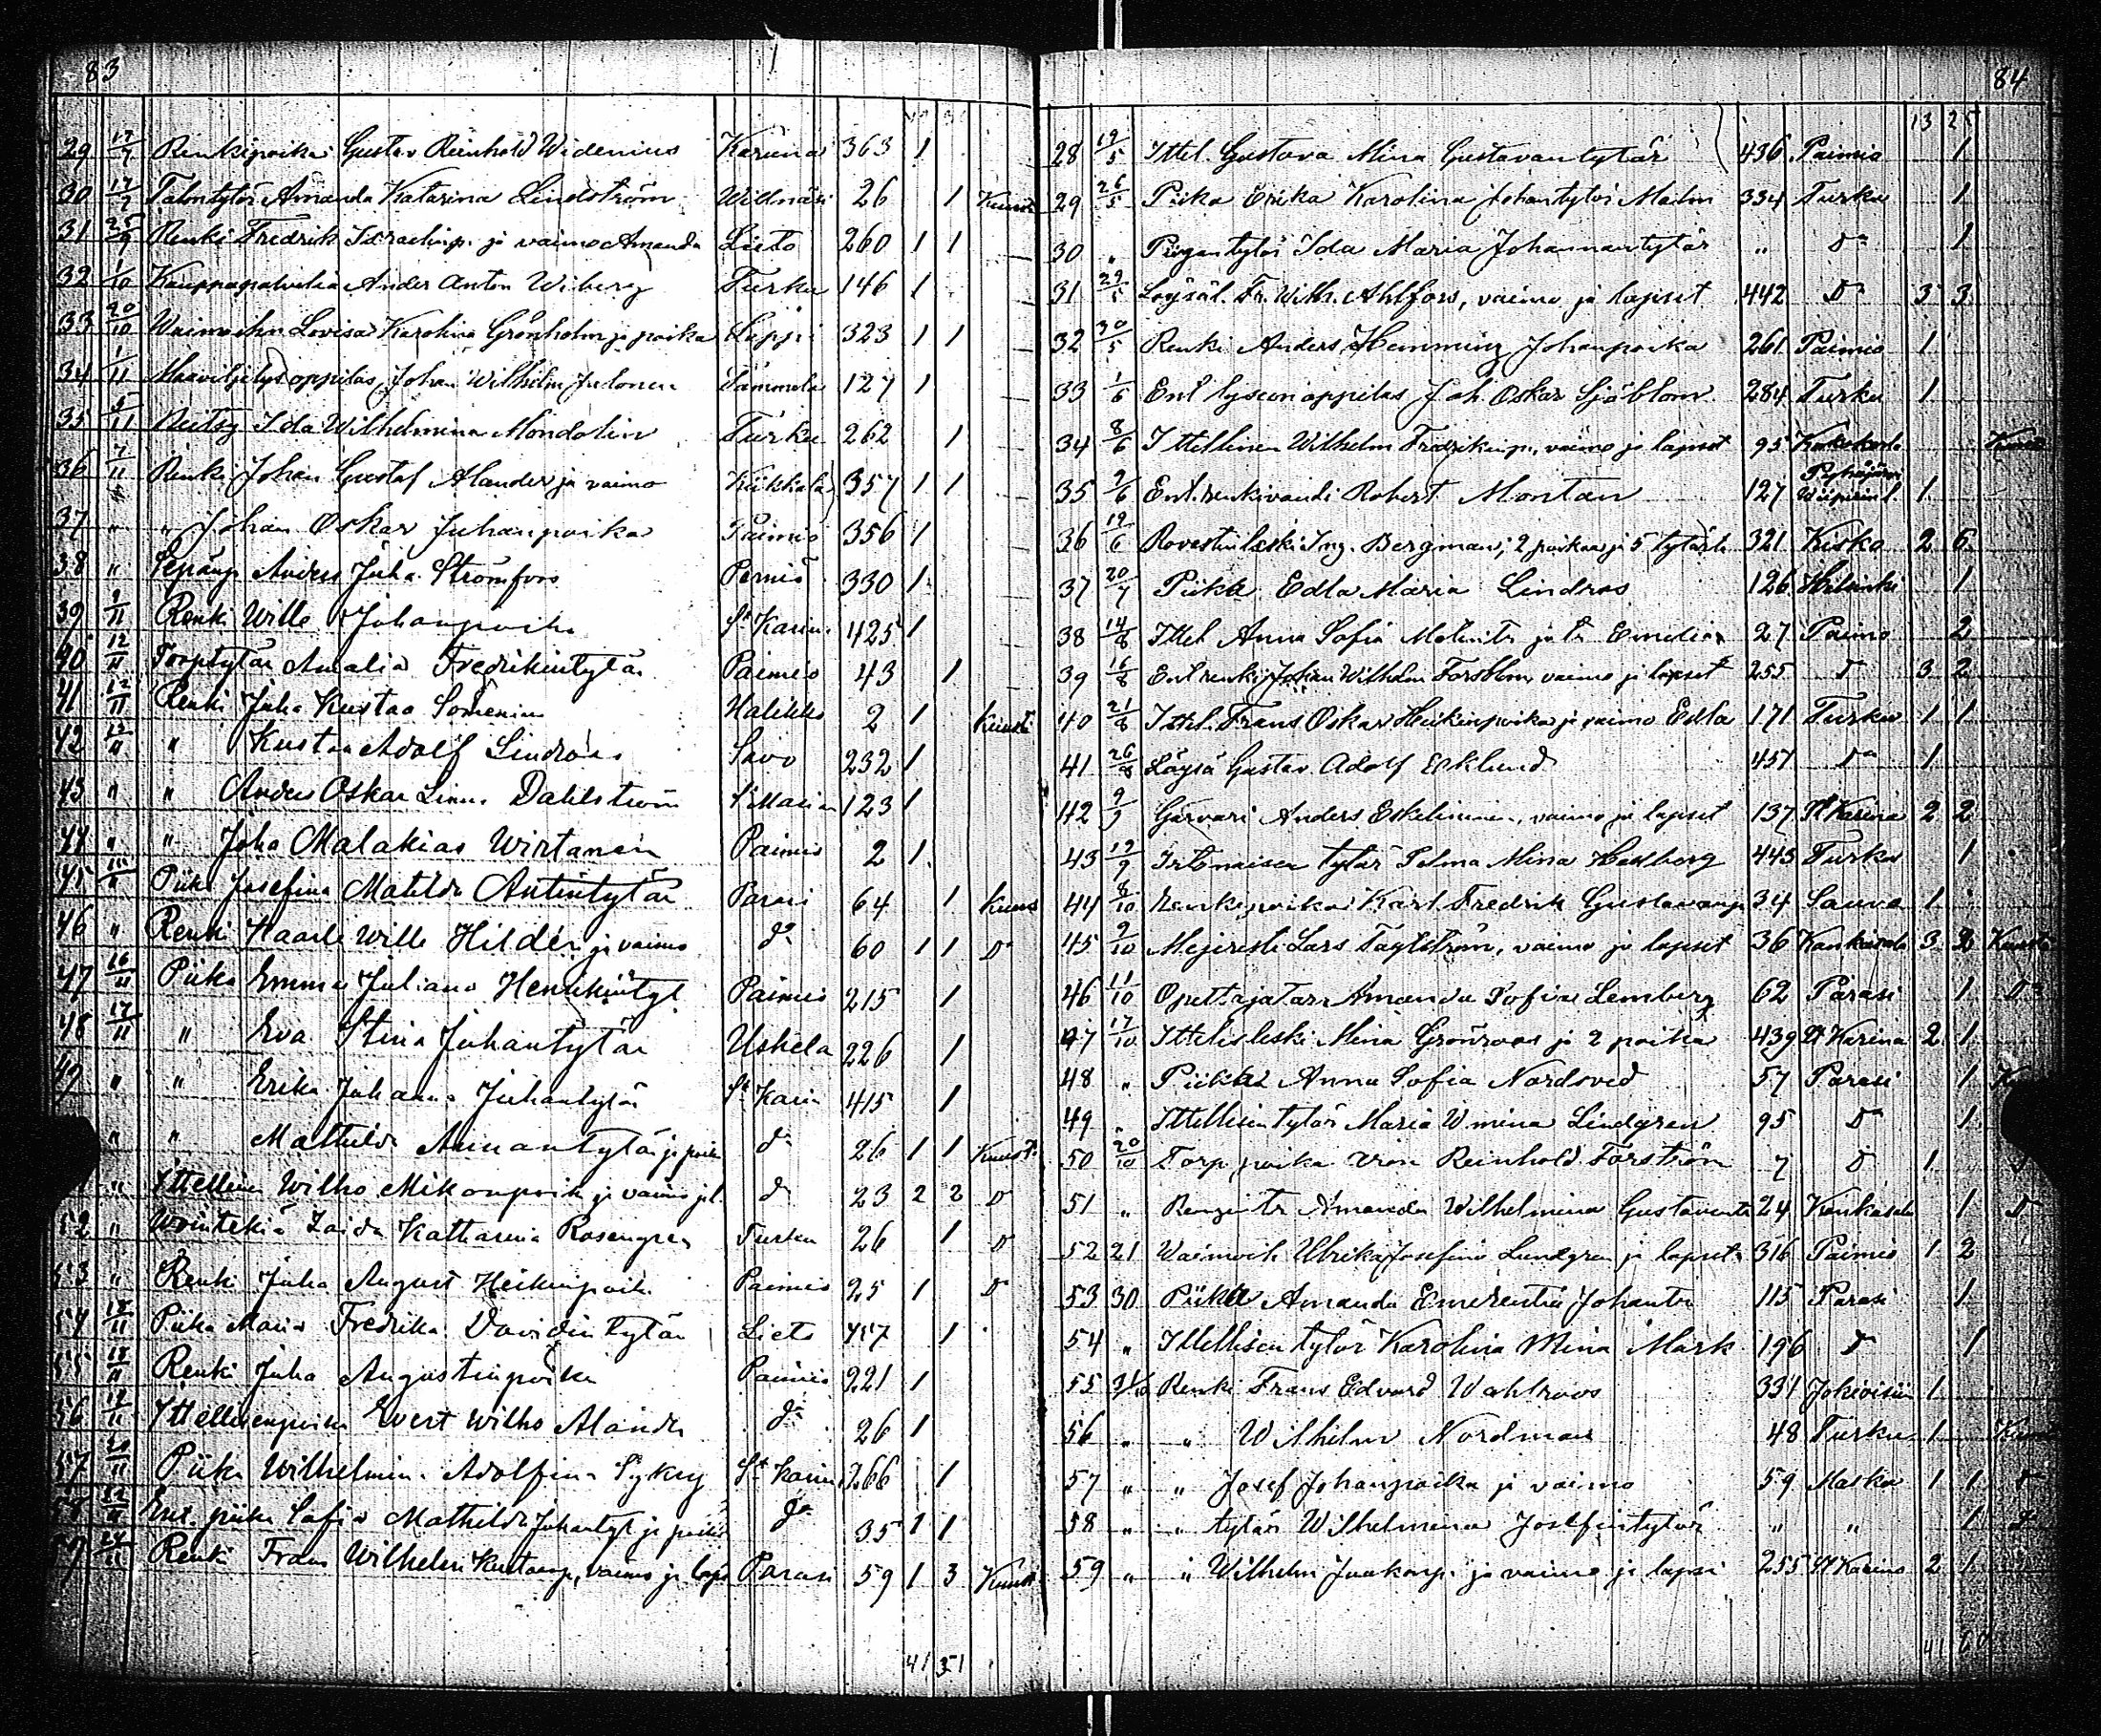 83
29 17/7 Renkipoika Gustav Reinhold Widenius Karuna 363 1
30 17/7 Talontytär Amanda Katarina Lindström Willnäsi 26 1
31 25/9 Renki Fredrik Israelinp. ja vaimo Amanda Lieto 260 1 1
32 1/10 Kauppapalvelia Ander Anton Wiberg Turku 146 1
33 20/10 Waimoihm Lovisa Karolina Grönholm ja poika Lappi 323 1 1
34 1/11 Maaviljelysoppilas Johan Wilhelm Julonen Tammela 127 1
35 5/11 Neitsy Ida Wilhelmina Mondolin Turku 262 1
36 7/11 Renki Johan Gustaf Alander ja vaimo Kiikkala 357 1 1
37 " " Johan Oskar Juhanpoika Paimio 356 1
38 " Sepänp Anders Juha Strömfors Perniö 330 1
39 9/11 Renki Wille Johanpoika St Karin 425 1
40 12/11 Torptytär Amalia Fredrikintytär Paimio 43 1
41 12/11 Renki Juha Kustaa Somenius Halikko 2 1 Kuusto
42 12/11 " Kustaa Adolf Lindroos Savo 232 1
43 " " Anders Oskar Linus Dahlström St Marian 123 1
44 " " Joha Malakias Wirtanen Paimio 2 1
45 Piika Josefina Matilda Antintytär Parasi 64 1 Kuus
46 " Renki Kaarle Wille Hilden ja vaimo do 60 1 1 Do
47 16/11 Piika Emma Juliana Henrikintyt Paimio 215 1
48 17/11 " Eva Stina Juhantytär Uskela 226 1
49 " " Erika Juhana Juhantytär St Karin 415 1
" " Mathilda Annantytär ja poika do 26 1 1 Kuusto
" Ittellinen Wilho Mikonpoik ja vaimo ja l. do 23 2 2 Do
52 " Zaida Katharina Rosengren Turku 26 1 Do
53 " Renki Juha August Heikinpoik Paimio 25 1 Do
54 18/11 Piika Maria Fredrika Davidintytär Lieto 457 1
55 18/11 Renki Juha Augustinpoika Paimio 221 1
56 18/11 Ittellisenpoika Evert Wilho Alander do 26 1
57 20/11 Piika Wilhelmina Adolfina Sykey St Karin 266 1
58 Ent. piika Sofia Mathilda Juhantyt ja poika do 35 1 1
59 24/11 Renki Frans Wilhelm Kustaanp, vaimo ja laps Parasi 59 1 3 Kuusto
41 51
84
13 25
28 19/5 Ittel. Gustava Mina Gustavantytär 436 Paimio 1
29 26/5 Piika Erika Karolina Johantytär Malm 334 Turku 1
30 " Piigantytär Ida Maria Johannantytär " Do 1
31 29/5 Löysäl. Fr. Wilh. Ahlfors, vaimo ja lapset 442 Do 3 3
32 30/5 Renki Anders Hemming Johanpoika 261 Paimio 1
33 1/6 Ent lyseonoppilas Joh. Oskar Sjöblom 284 Turku 1
34 8/6 Ittellinen Wilhelm Fredrikinp., vaimo ja lapset 95
35 9/6 Ent. renkivouti Robert Montan 127 Pyhäjärvi Wiipurin l. 1
36 19/6 Rovestin leski Ing. Bergman, 2 poikaa ja 5 tytärtä 321 Kisko 2 6
37 20/7 Piika Edla Maria Lindros 126 Helsinki 1
38 14/8 Ittel Anna Sofia Malmito ja tr Emelia 27 Paimio 2
39 16/8 Ent renki Johan Wilhelm Forsblom vaimo ja lapset 255 Do 3 2
40 21/8 Ittel. Frans Oskar Heikinpoika ja vaimo Edla 171 Turku 1 1
41 26/8 Löysä Gustav Adolf Eklund 457 Do 1
42 9/9 Garvari Anders Eskelininen, vaimo ja lapset 137 St Karina 2 2
43 12/9 Irtonaisen tytär Selma Mina Hedberg 443 Turku 1
44 8/10 Renkipoika Karl Fredrik Gustavanp 34 Sauvo 1
45 9/10 Mejeristi Lars Täglström, vaimo ja lapset 36 Kankasala 3 2 Kuusto
46 11/10 Opettajatar Amanda Sofia Lemberg 62 Parasi 1 Do
47 17/10 Ittelisleski Mina Grönroos ja 2 poikaa 439 St Karina 2 1
48 " Piika Anna Sofia Nordsved 57 Parasi 1
49 " Ittellisen tytär Maria Wmina Lindgren 95 Do 1
50 20/10 Torp. poika Reinhold Forström 7 Do 1
51 " Rengintr Amanda Wilhelmina Gustavintr 24 Kankasala 1 Do
52 21 Waimoih Ulrika Josefina Lundgren ja lapset 316 Paimio 1 2
53 30 Piika Amanda Emerentia Johantr 115 Parasi 1
54 " Ittellisen tytär Karolina Mina Mark 196 Do 1
55 Renki Frans Edvard Wahlroos 331 Jokioisiin 1
56 " " Wilhelm Nordman 48 Turku 1
57 " " Josef Johanpoika ja vaimo 59 Masku 1 1 Do
58 " " tytär Wilhelmina Josefintytär " " 1
59 " " Wilhelm Jaakonp. ja vaimo ja lapsi 255 St Karins 2 1
41